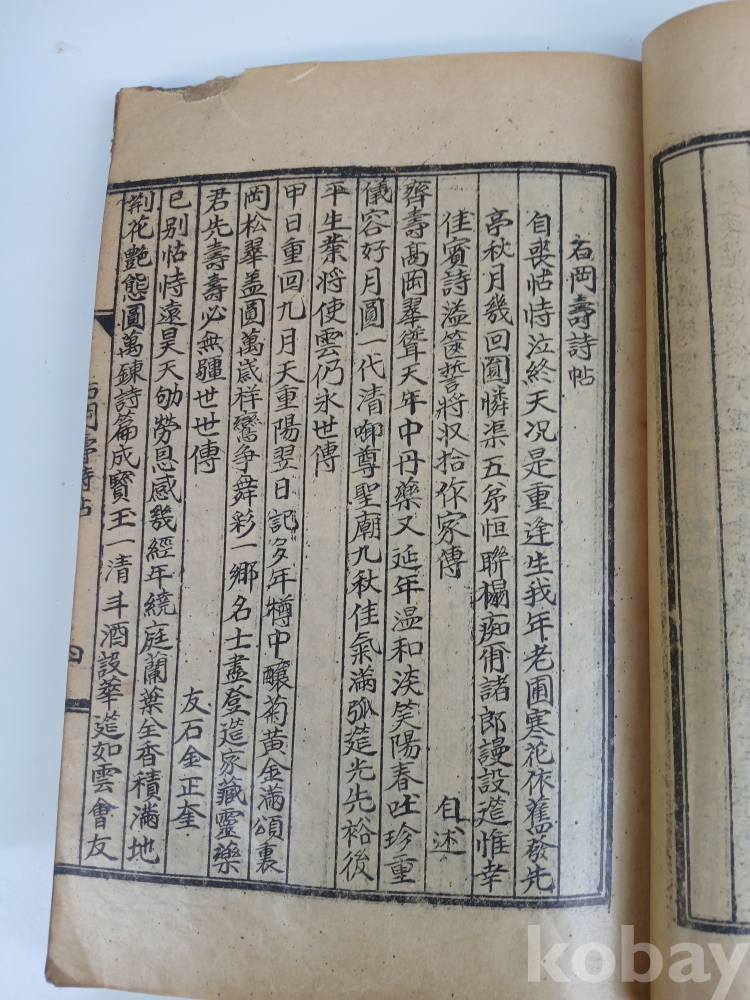 石岡壽詩帖
自喪怙恃泣終天况是重逢生我年老圃寒花依舊發先
亭秋月幾回圓憐渠五弟恒聯榻痴甭諸郎謾設筵惟幸
佳賓詩溢篋誓將収拾作家傳
自述
齊壽髙岡翠聳天年中丹藥又延年温和淡笑陽春吐珍重
儀容好月圓一代清啣尊聖廟九秋佳氣滿弧筵光先裕後
平生業將使雲仍永世傳
甲日重回九月天重陽翌日記多年樽中釀菊黄金滿頌裏
岡松翠盖圓萬歲祥鸞爭舞彩一鄉名士盡登筵家藏靈藥
君先壽壽必無疆世世傳
友石金正奎
已别怙恃遠昊天劬勞恩感幾經年繞庭蘭葉全香積滿地
荆花艶態圓萬鍊詩篇成賢玉一清斗酒設華筵如雲會友
石岡亭詩帖
四
kobay